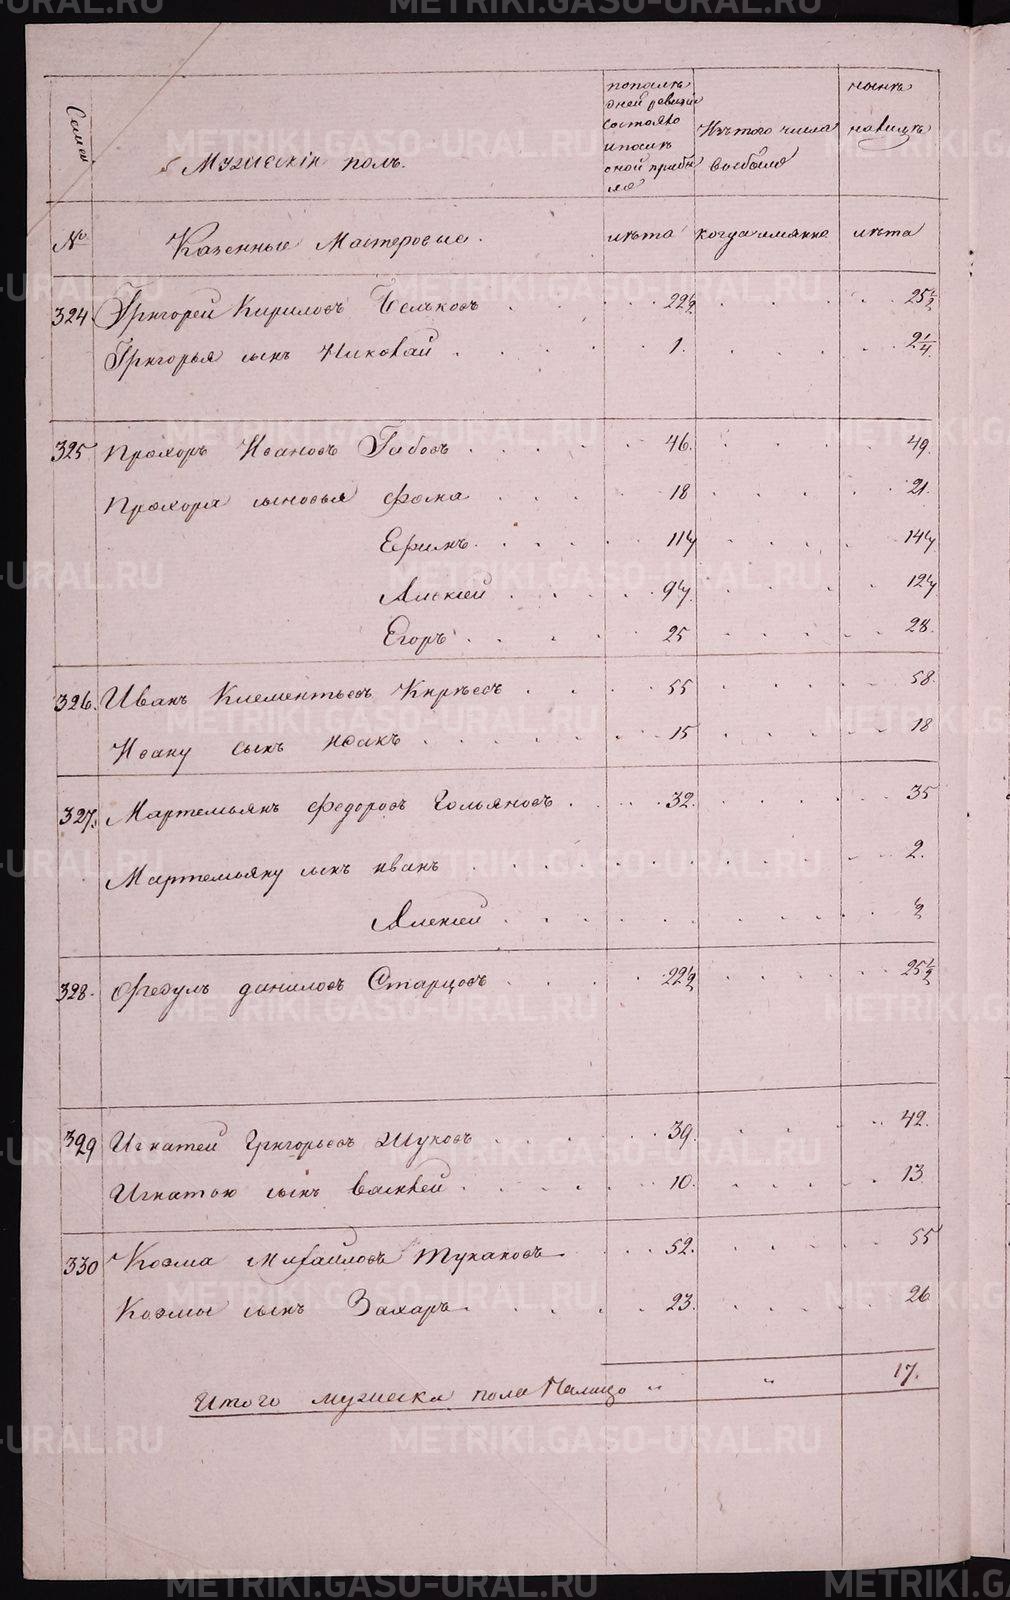 Семьи
Мужескій полъ.
по последней ревизіи состояло и после оной прибыло
Изъ того числа выбыло
ныне на лицо
№ Казенные Мастеровые. лѣта когда имянно лѣта
324. Григорей Кириловъ 22½ 25½
Григорья сынъ Николай 1. 2¼.
325 Прохоръ Ивановъ Губовъ 46. 49.
Прохора сыновья Фома 18 21.
Ефимъ. 11 14
Алексей 9 12
Егоръ 25 28.
326. Иванъ Клементьевъ 55 58.
Ивану сынъ Исакъ 15 18
327. Мартемьянъ Федоровъ Гольяновъ 32. 35
Мартемьяну сынъ иванъ 2.
Алексей ½
328. Федулъ даниловъ Старцовъ 22½ 25½
329 Игнатей Григорьевъ Жуковъ 39. 42.
Игнатью сынъ василей 10. 13.
330 Козма Михайловъ Тукановъ 52. 55
Козмы сынъ Захаръ 23. 26
Итого мужеска пола На лицо " " 17.
METRIKI.GASO-URAL.RU